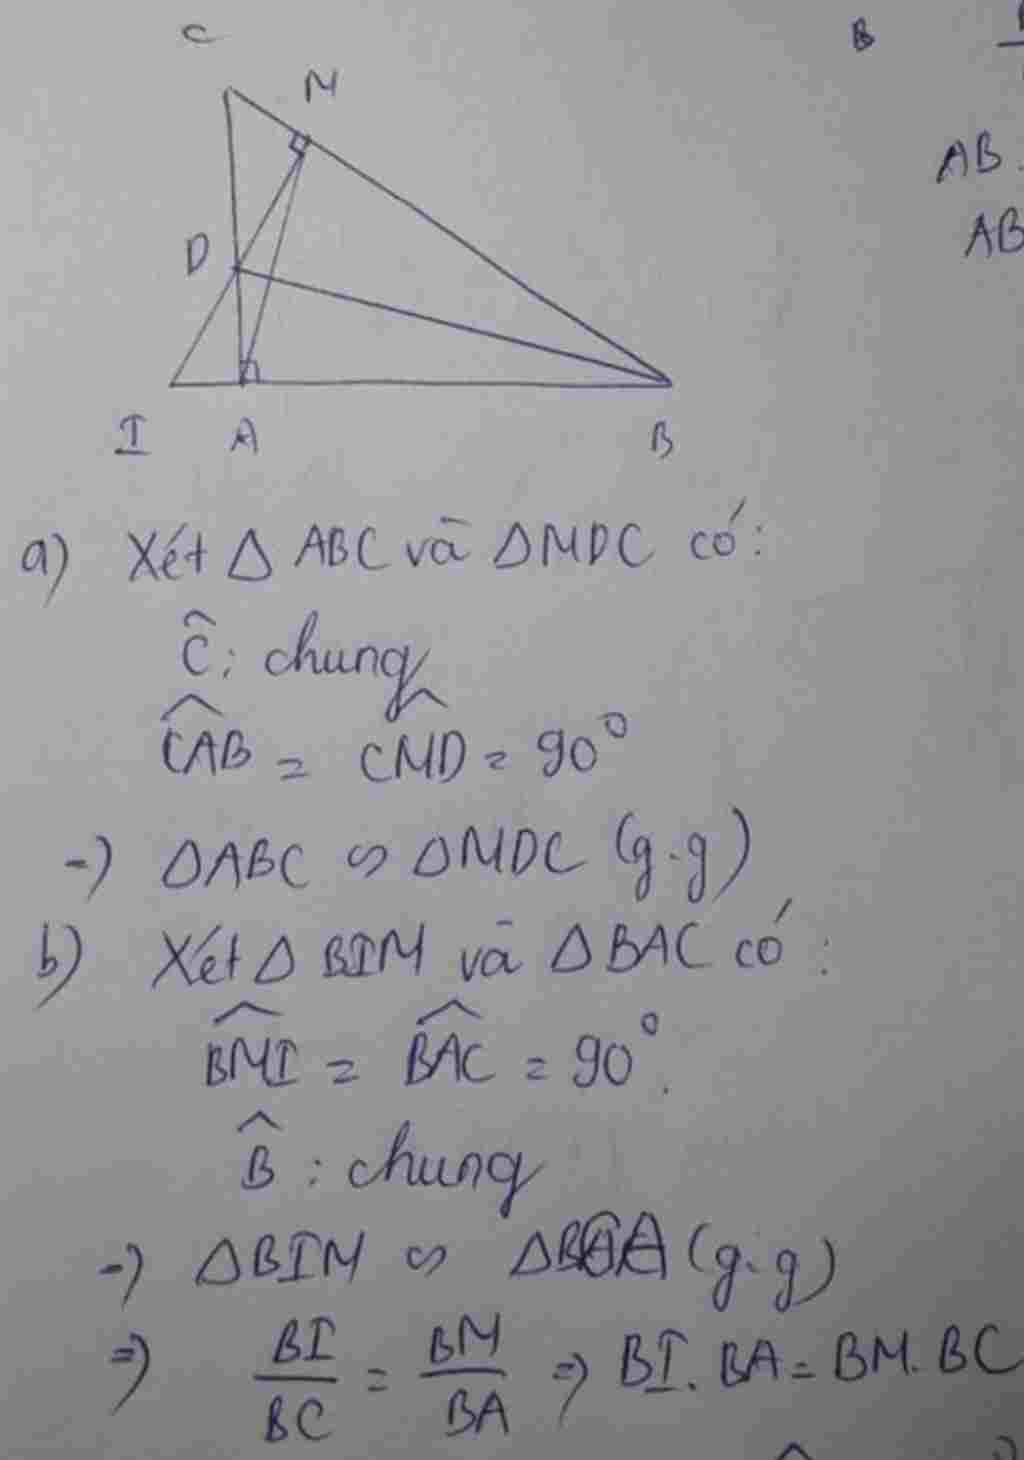 C
M
B
AB.
AB
D
I A B
a) Xét Δ ABC và ΔMDC có:
Ĉ: chung
\widehat{CAB} = \widehat{CMD} = 90°
-) ΔABC ∽ ΔMDC (g.g)
b) Xét Δ BIM và Δ BAC có:
\widehat{BMI} = \widehat{BAC} = 90°.
B̂ : chung
-) ΔBIM ∽ ΔBCA (g.g)
=) BI/BC = BM/BA =) BI. BA = BM. BC